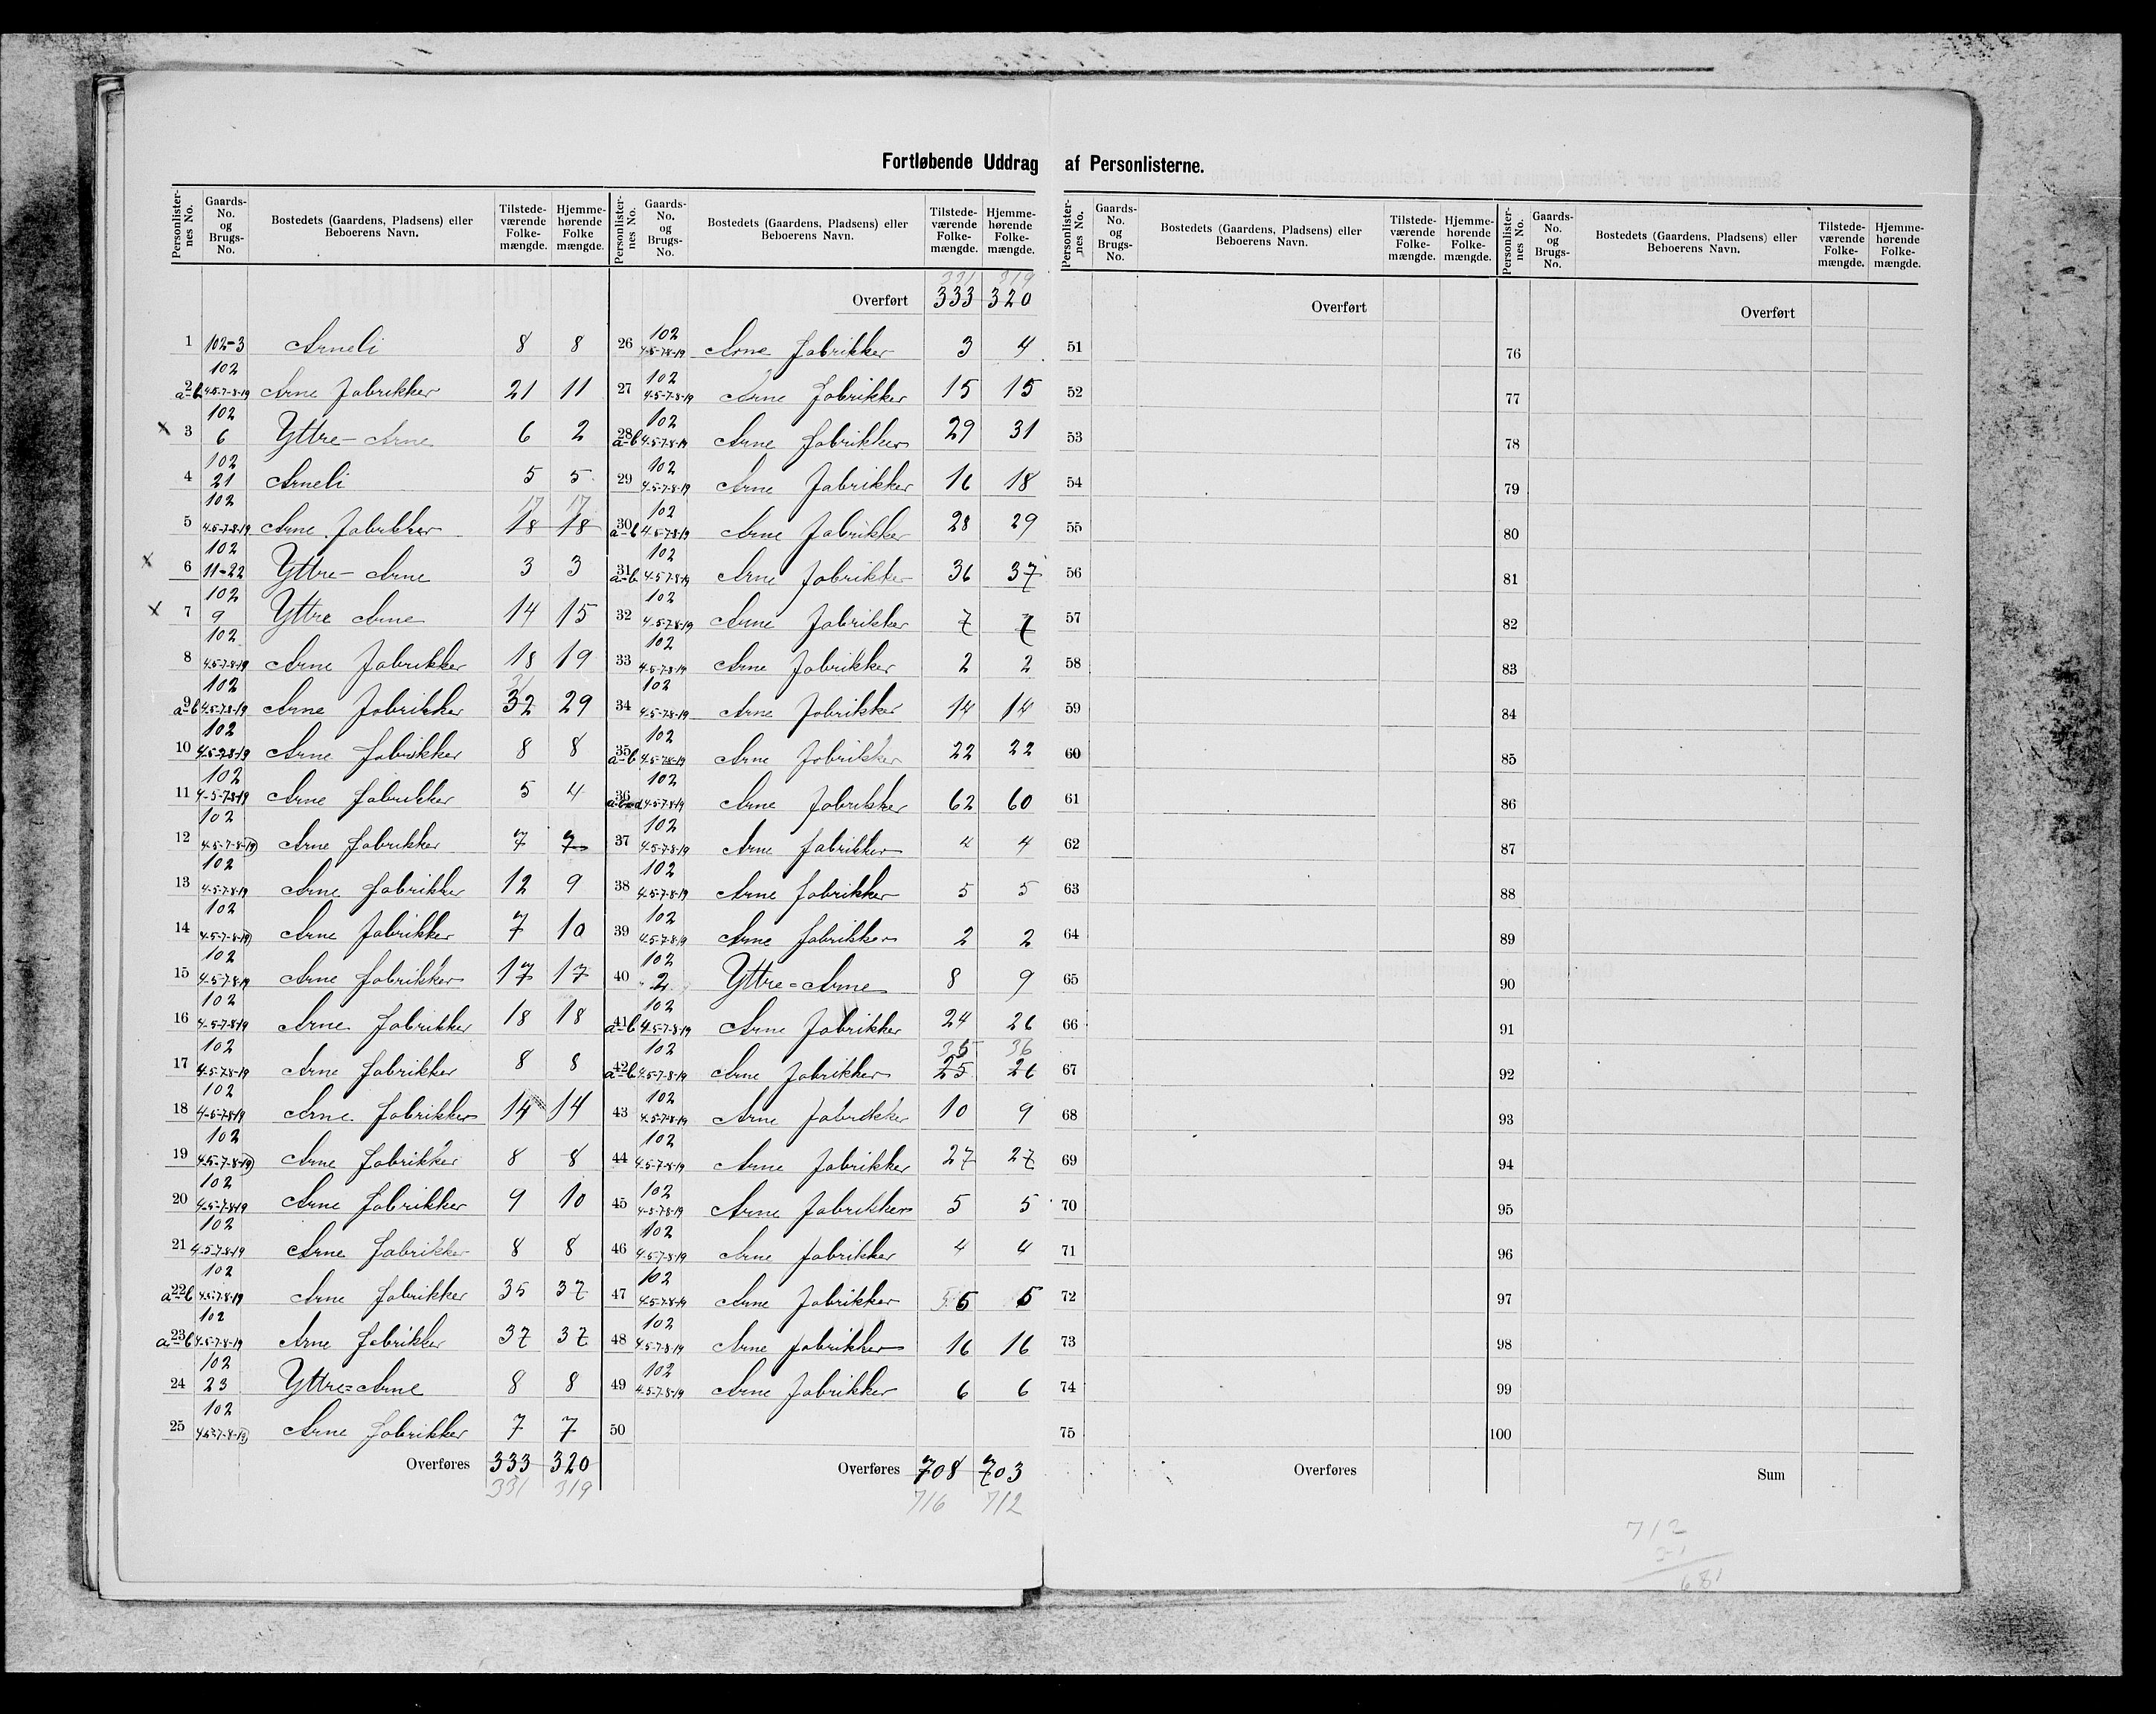 Fortløbende Uddrag af Personlisterne.
Personlisternes No. | Gaards-No. og Brugs-No. | Bostedets (Gaardens, Pladsens) eller Beboerens Navn. | Tilstedeværende Folkemængde. | Hjemmehørende Folkemængde.
1 102-3 Arneli 8 8
2 a-b 102 4-5-7-8-19 Arne Fabrikker 21 11
x 3 102 6 Yttre-Arne 6 2
4 102 21 Arneli 5 5
17 17
5 102 4-5-7-8-19 Arne Fabrikker 18 18
x 6 102 11-22 Yttre-Arne 3 3
x 7 102 9 Yttre Arne 14 15
8 102 4-5-7-8-19 Arne Fabrikker 18 19
31
9 a-b 102 4-5-7-8-19 Arne Fabrikker 32 29
10 102 4-5-7-8-19 Arne Fabrikker 8 8
11 102 4-5-7-8-19 Arne Fabrikker 5 4
12 102 4-5-7-8-19 Arne Fabrikker 7 7
13 102 4-5-7-8-19 Arne Fabrikker 12 9
14 102 4-5-7-8-19 Arne Fabrikker 7 10
15 102 4-5-7-8-19 Arne Fabrikker 17 17
16 102 4-5-7-8-19 Arne Fabrikker 18 18
17 102 4-5-7-8-19 Arne Fabrikker 8 8
18 102 4-5-7-8-19 Arne Fabrikker 14 14
19 102 4-5-7-8-19 Arne Fabrikker 8 8
20 102 4-5-7-8-19 Arne Fabrikker 9 10
21 102 4-5-7-8-19 Arne Fabrikker 8 8
22 a-b 102 4-5-7-8-19 Arne Fabrikker 35 37
23 a-b 102 4-5-7-8-19 Arne Fabrikker 37 37
24 102 23 Yttre=Arne 8 8
25 102 4-5-7-8-19 Arne Fabrikker 7 7
Overføres 333 320
331 319
Personlisternes No. | Gaards-No. og Brugs-No. | Bostedets (Gaardens, Pladsens) eller Beboerens Navn. | Tilstedeværende Folkemængde. | Hjemmehørende Folkemængde.
331 319
Overført 333 320
26 102 4-5-7-8-19 Arne Fabrikker 3 4
27 102 4-5-7-8-19 Arne Fabrikker 15 15
28 a-b 102 4-5-7-8-19 Arne Fabrikker 29 31
29 102 4-5-7-8-19 Arne Fabrikker 16 18
30 a-b 102 4-5-7-8-19 Arne Fabrikker 28 29
31 a-b 102 4-5-7-8-19 Arne Fabrikker 36 37
32 102 4-5-7-8-19 Arne Fabrikker 7 7
33 102 4-5-7-8-19 Arne Fabrikker 2 2
34 102 4-5-7-8-19 Arne Fabrikker 14 14
35 a-b 102 4-5-7-8-19 Arne Fabrikker 22 22
36 102 4-5-7-8-19 Arne Fabrikker 62 60
37 102 4-5-7-8-19 Arne Fabrikker 4 4
38 102 4-5-7-8-19 Arne Fabrikker 5 5
39 102 4-5-7-8-19 Arne Fabrikker 2 2
40 102 2 Yttre=Arne 8 9
41 a-b 102 4-5-7-8-19 Arne Fabrikker 24 26
35 36
42 a-b 102 4-5-7-8-19 Arne Fabrikker 25 26
43 102 4-5-7-8-19 Arne Fabrikker 10 9
44 102 4-5-7-8-19 Arne Fabrikker 27 27
45 102 4-5-7-8-19 Arne Fabrikker 5 5
46 102 4-5-7-8-19 Arne Fabrikker 4 4
47 102 4-5-7-8-19 Arne Fabrikker 5 5
48 102 4-5-7-8-19 Arne Fabrikker 16 16
49 102 4-5-7-8-19 Arne Fabrikker 6 6
50
Overføres 708 703
716 712
Personlisternes No. | Gaards-No. og Brugs-No. | Bostedets (Gaardens, Pladsens) eller Beboerens Navn. | Tilstedeværende Folkemængde. | Hjemmehørende Folkemængde.
Overført
51
52
53
54
55
56
57
58
59
60
61
62
63
64
65
66
67
68
69
70
71
72
73
74
75
Overføres
Personlisternes No. | Gaards-No. og Brugs-No. | Bostedets (Gaardens, Pladsens) eller Beboerens Navn. | Tilstedeværende Folkemængde. | Hjemmehørende Folkemængde.
Overført
76
77
78
79
80
81
82
83
84
85
86
87
88
89
90
91
92
93
94
95
96
97
98
99
100
Sum
712
681